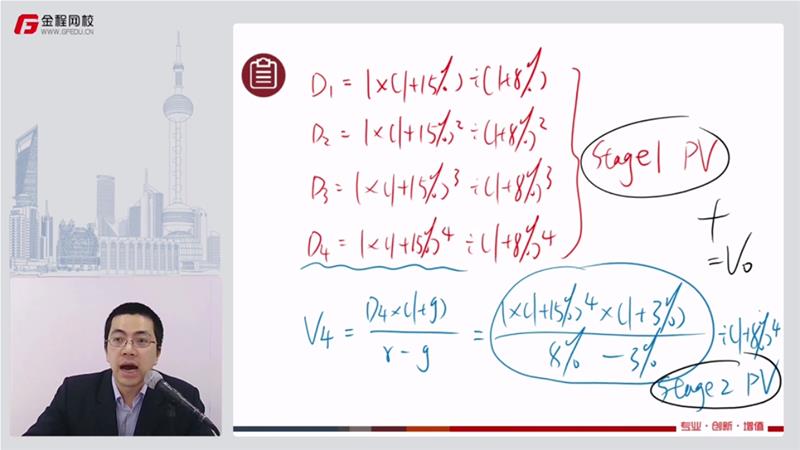 金程网校
WWW.GFEDU.CN
D₁ = 1×(1+15%) ÷(1+8%)
D₂ = 1×(1+15%)² ÷(1+8%)²
D₃ = 1×(1+15%)³ ÷(1+8%)³
D₄ = 1×(1+15%)⁴ ÷(1+8%)⁴
Stage1 PV
+
=V₀
V₄ = D₄×(1+g) / r-g = 1×(1+15%)⁴×(1+3%) / 8% - 3% ÷(1+8%)⁴
Stage2 PV
专业·创新·增值